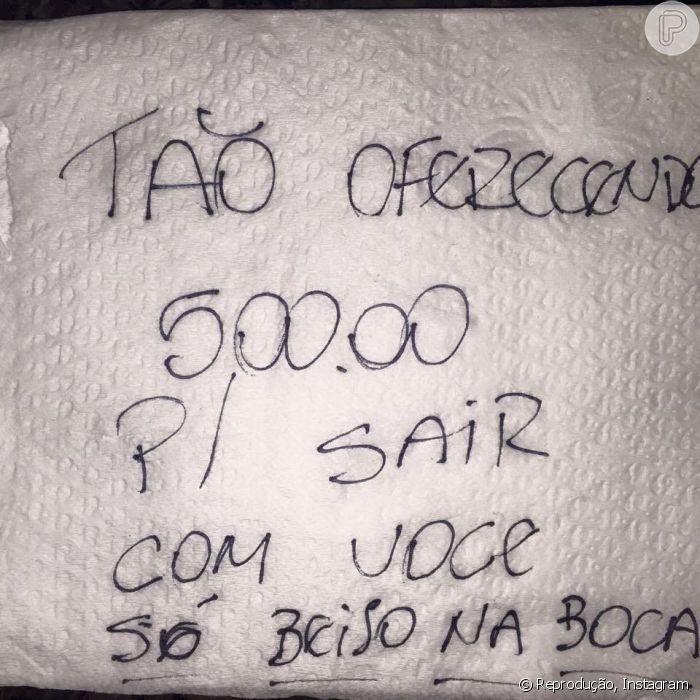 TAŎ OFERECENDO
500.00
P/ SAIR
COM VOCE
SÓ BEIJO NA BOCA
© Reprodução, Instagram